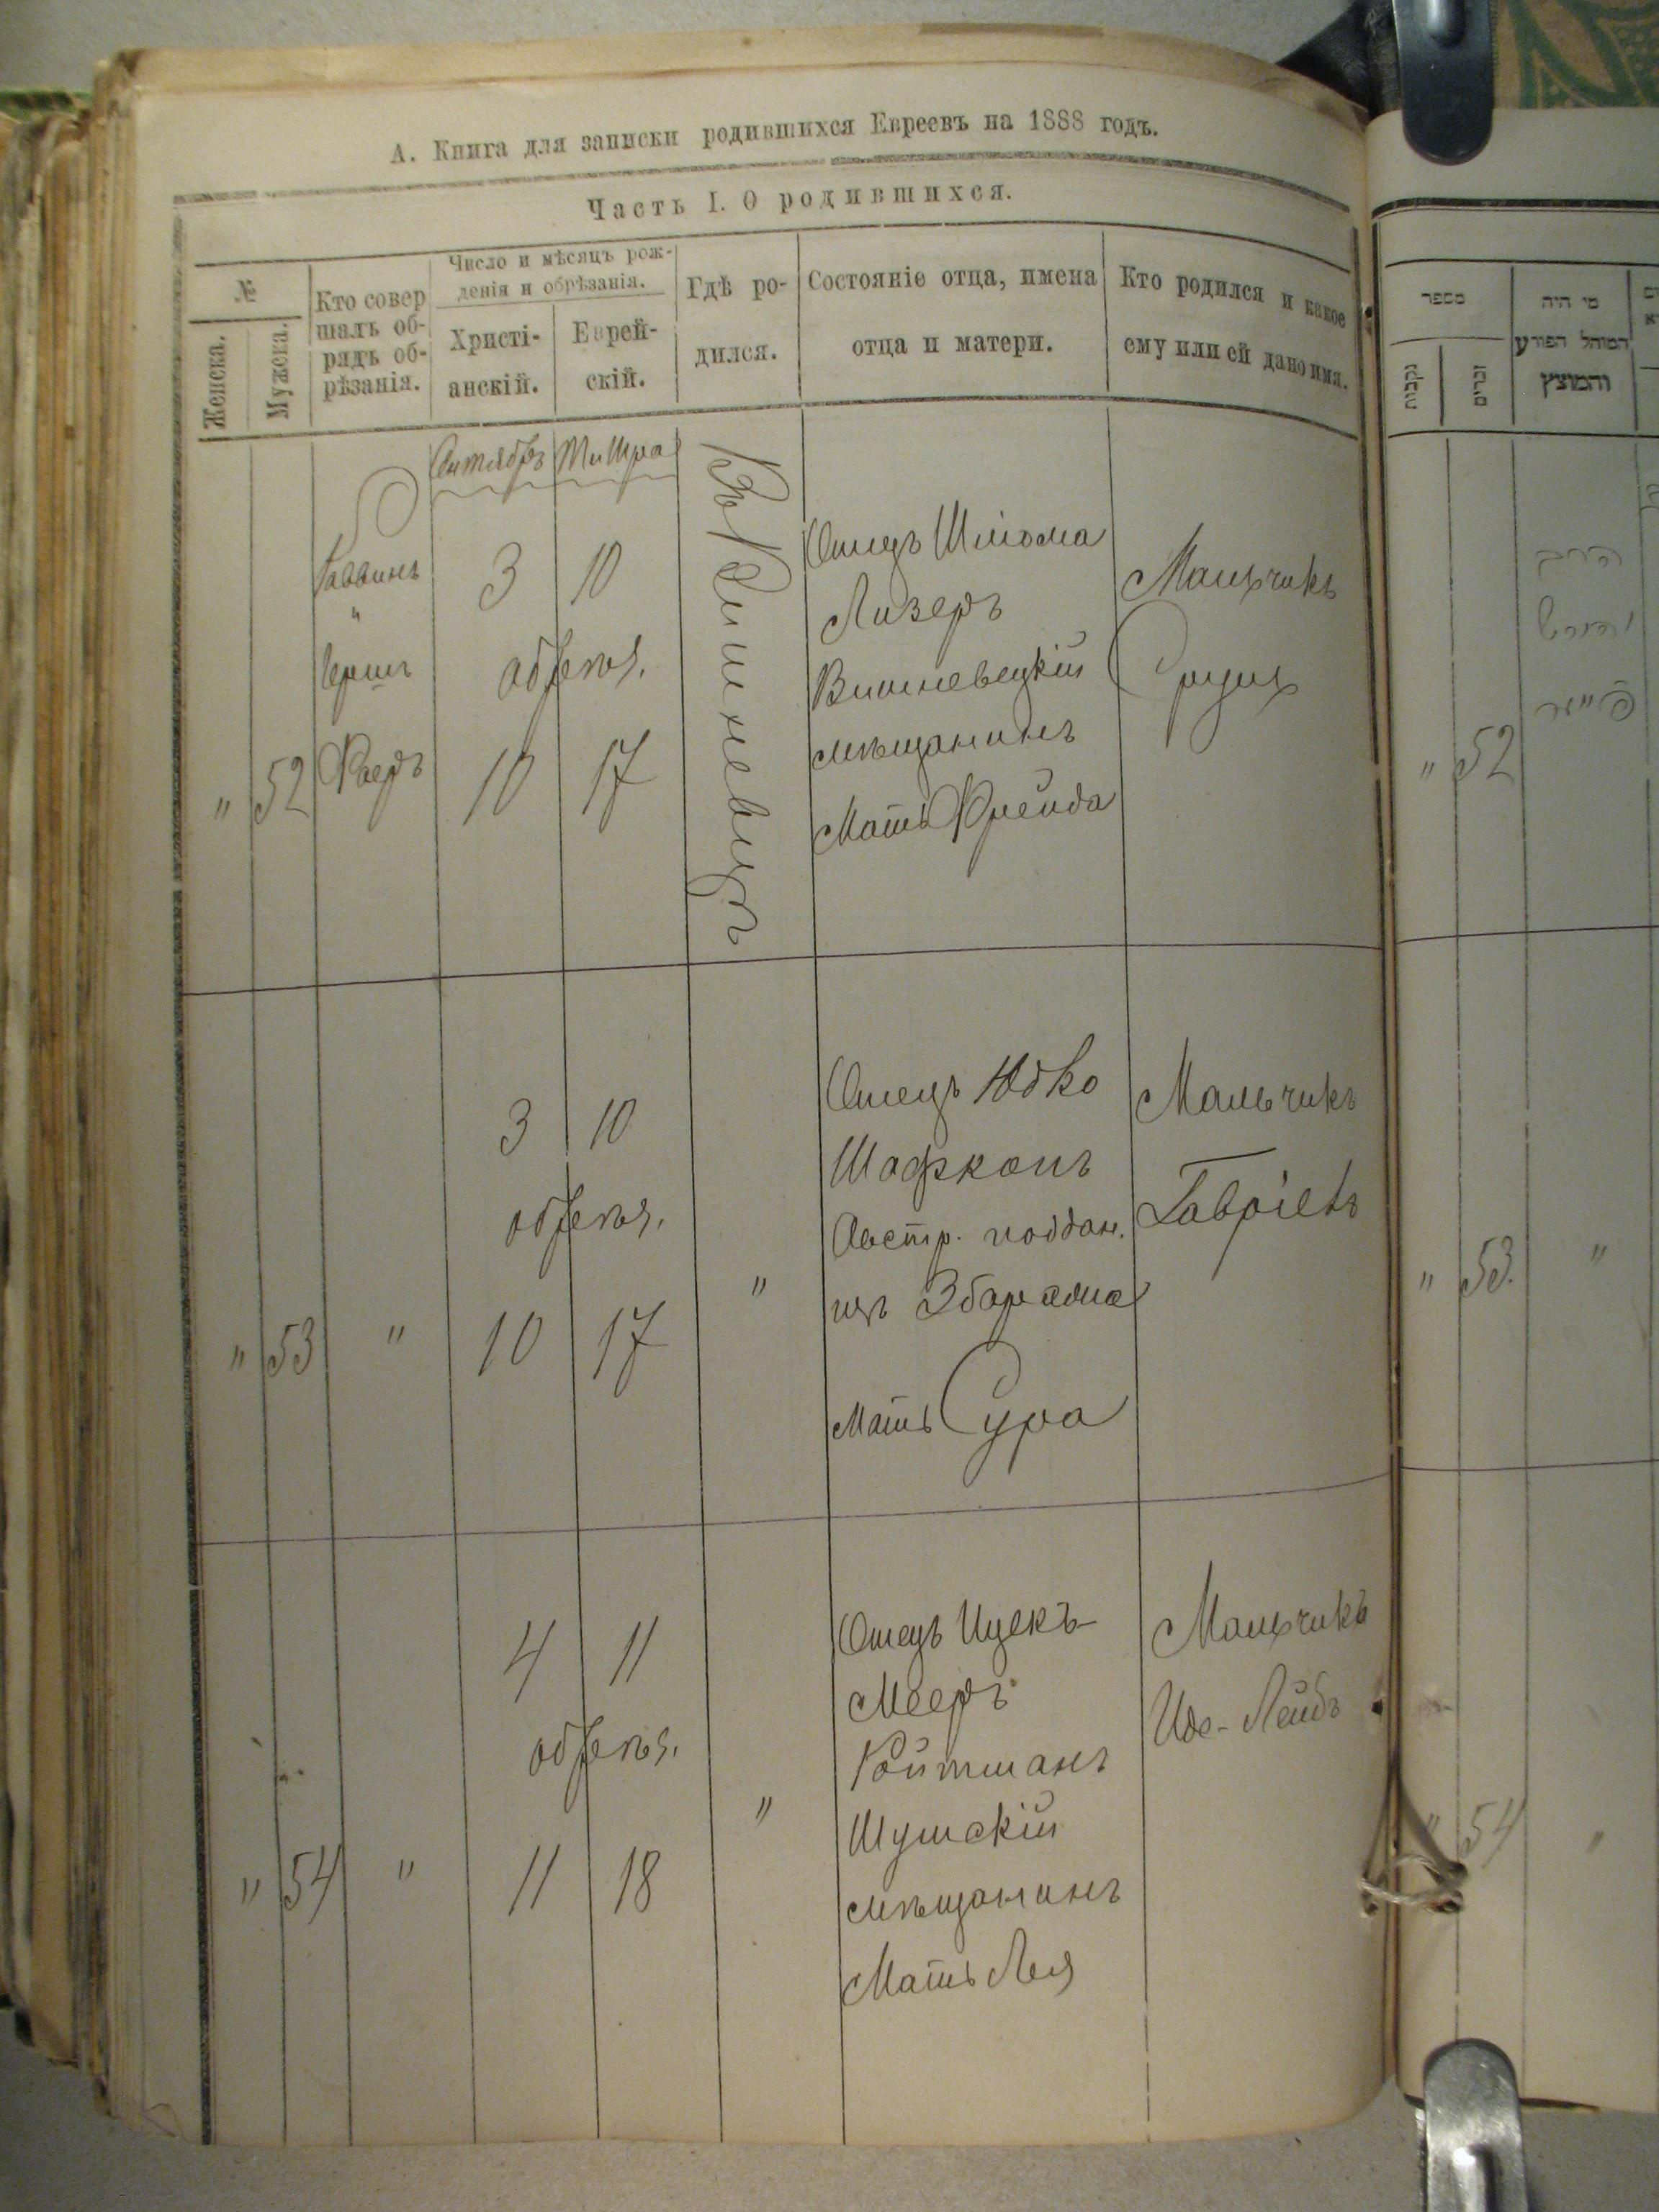 А. Книга для записки родившихся Евреевъ на 1888 годъ.
Часть I. О родившихся.
№
Женска.
Мужска.
Кто совер
шалъ об-
рядъ об-
рѣзанія.
Число и мѣсяцъ рож-
денія и обрѣзанія.
Христі-
анскій.
Еврей-
скій.
Гдѣ ро-
дился.
Состояніе отца, имена
отца и матери.
Кто родился и какое
ему или ей дано имя.
Сентябрь Тишра
" 52
Раввинъ
"
Герш
Фаеръ
3 10
обрѣзая.
10 17
Въ Вишневцѣ
Отецъ Шлiома
Лизеръ
Вишневецкій
мѣщанинъ
Мать Фрейда
Мальчикъ
" 53 "
3 10
обрѣзая.
10 17
"
Отецъ Юдко
Шафкопъ
Австр. поддан.
изъ Збаража
Мать Сура
Мальчикъ
Гавріель
" 54 "
4 11
обрѣзая.
11 18
"
Отецъ Ицекъ
Мееръ
Ройтманъ
мѣщанинъ
Мать Лея
Мальчикъ
Идо-Лейбъ
מספר
נקבות
זכרים
מי היה
המוהל הפורע
והמוצץ
" 52
" 53. "
" 54 "